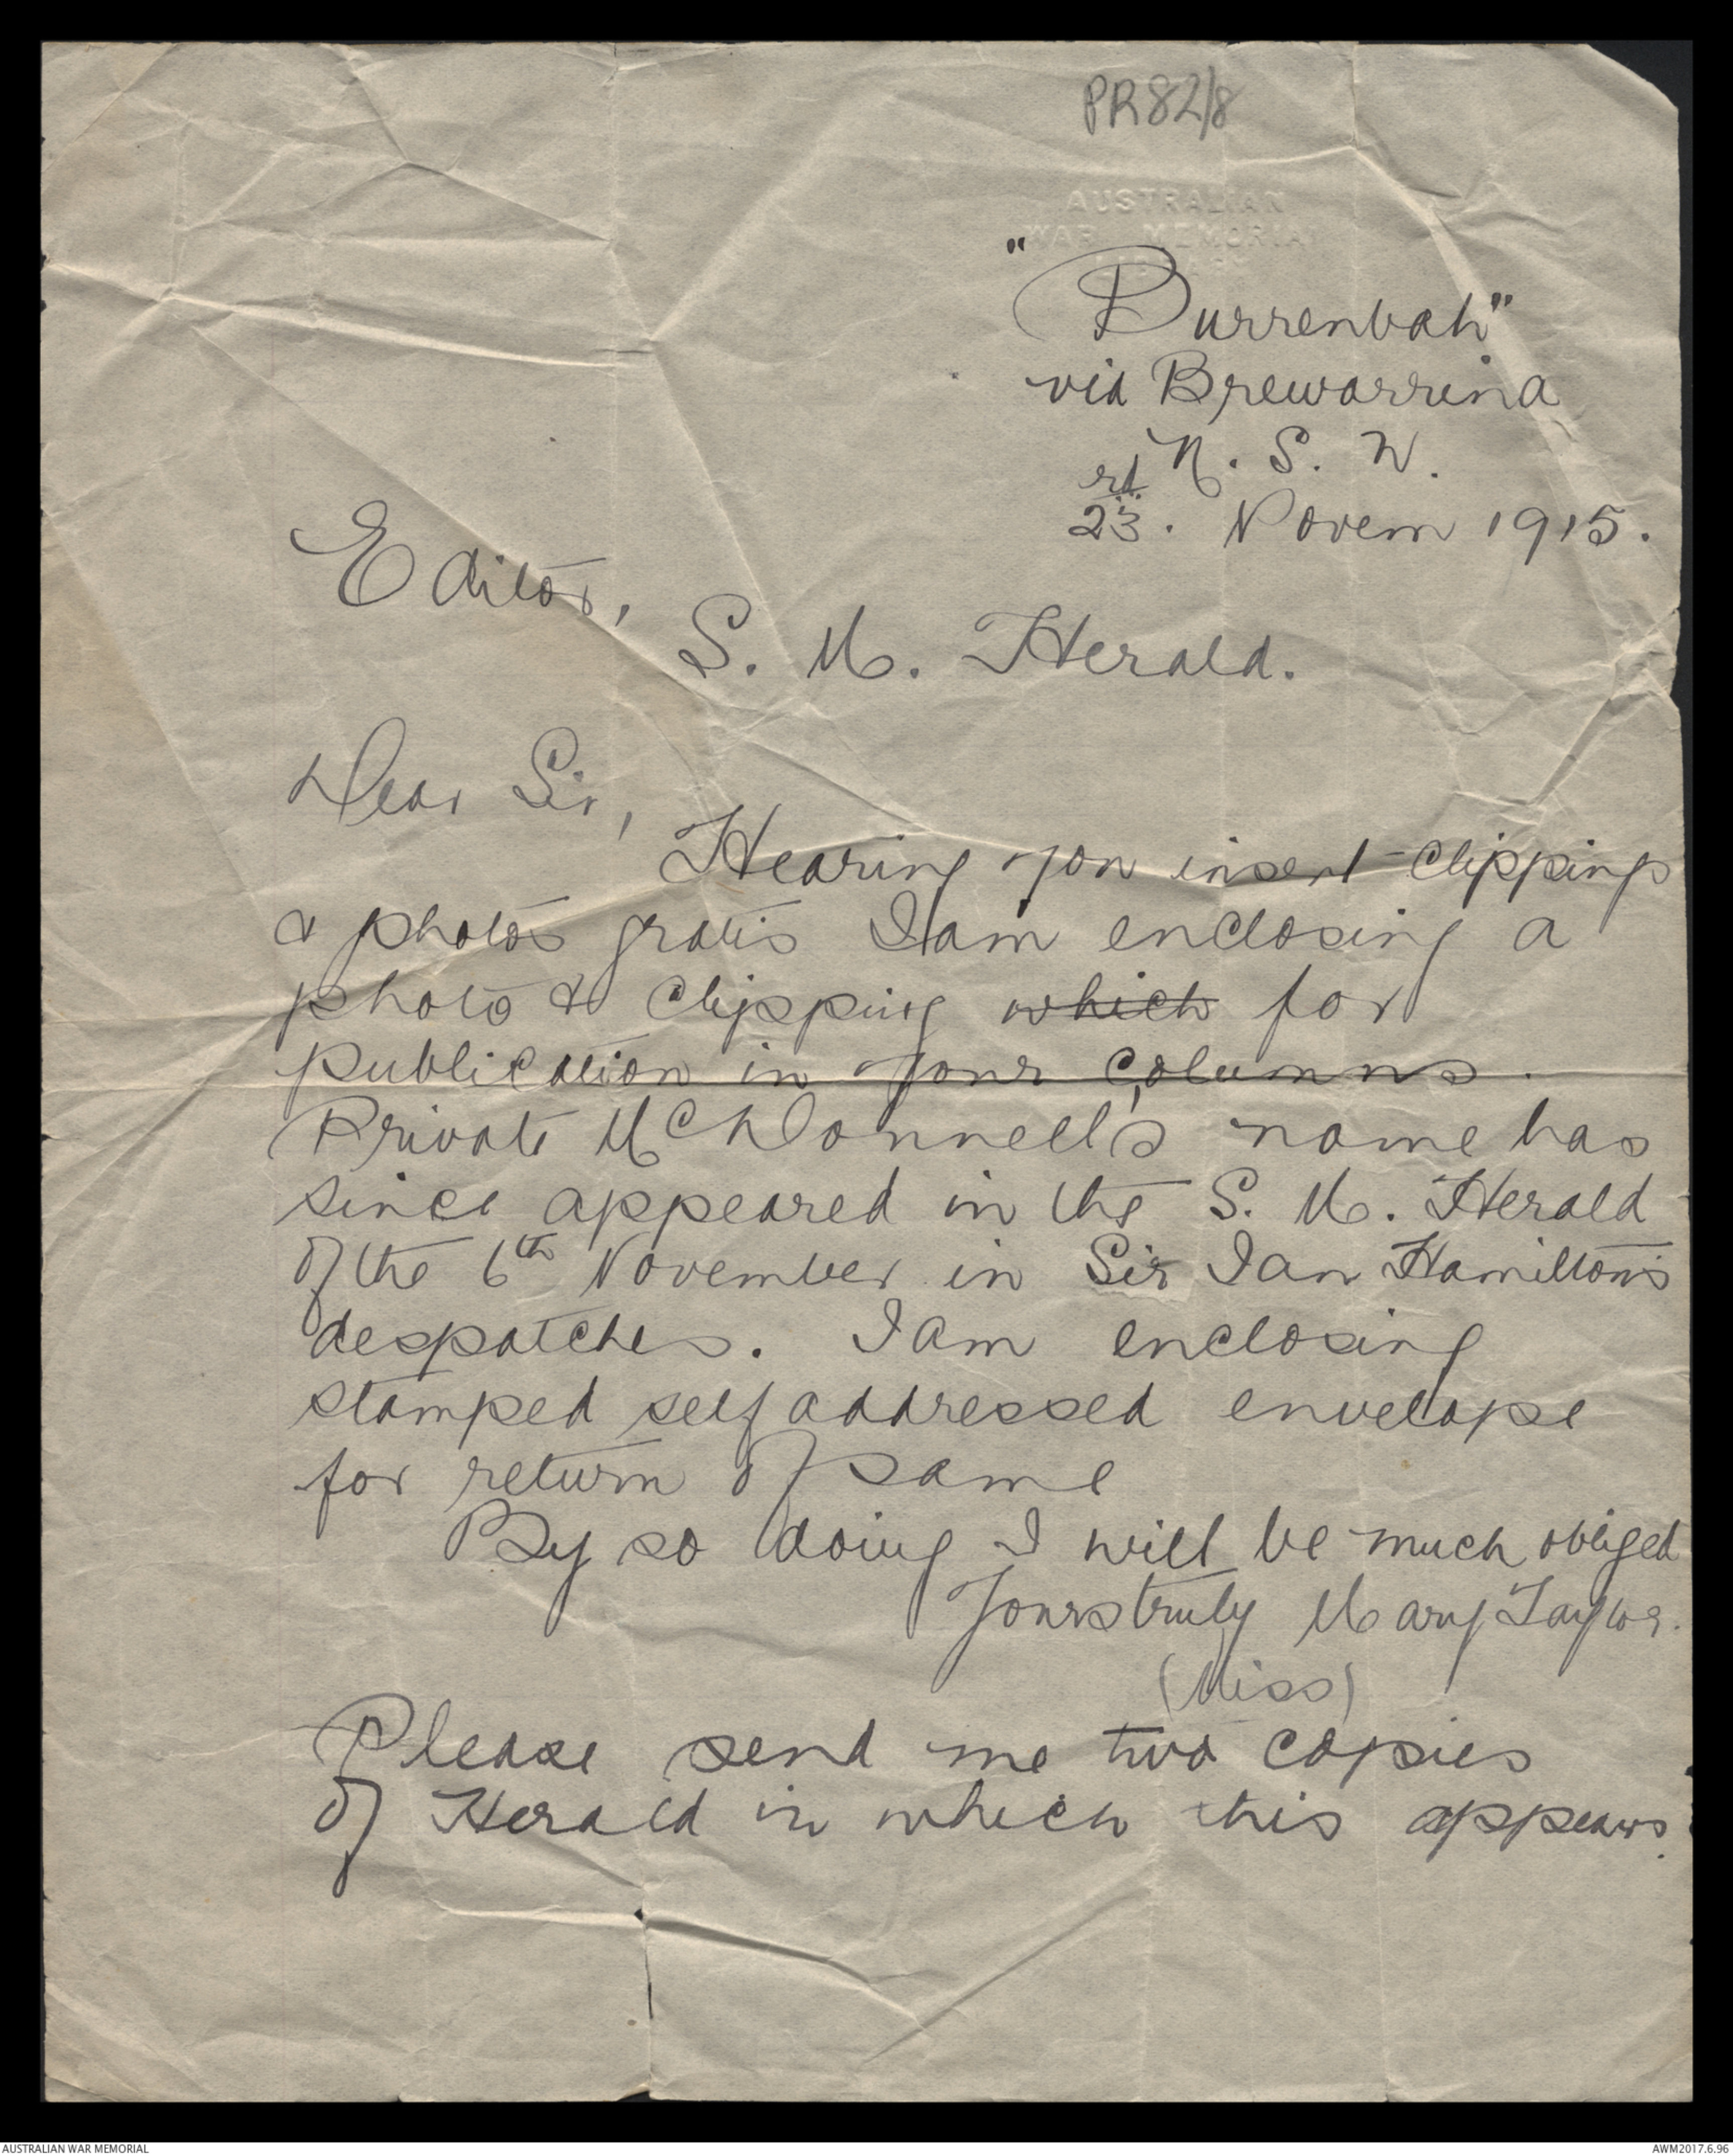 PR82/8
AUSTRALIAN
WAR MEMORIAL
"Burrenbah"
via Brewarrina
N. S. W.
23rd. Novem 1915.
Editor,
S. M. Herald.
Dear Sir,
Hearing you insert clippings
& photos gratis I am enclosing a
photo & clipping which for
publication in your columns.
Private McDonnell's name has
since appeared in the S. M. Herald
of the 6th November in Sir Ian Hamilton's
despatches. I am enclosing
stamped self addressed envelope
for return of same
By so doing I will be much obliged
Yours truly Mary Taylor.
(Miss)
Please send me two copies
of Herald in which this appears.
AUSTRALIAN WAR MEMORIAL
AWM2017.6.96